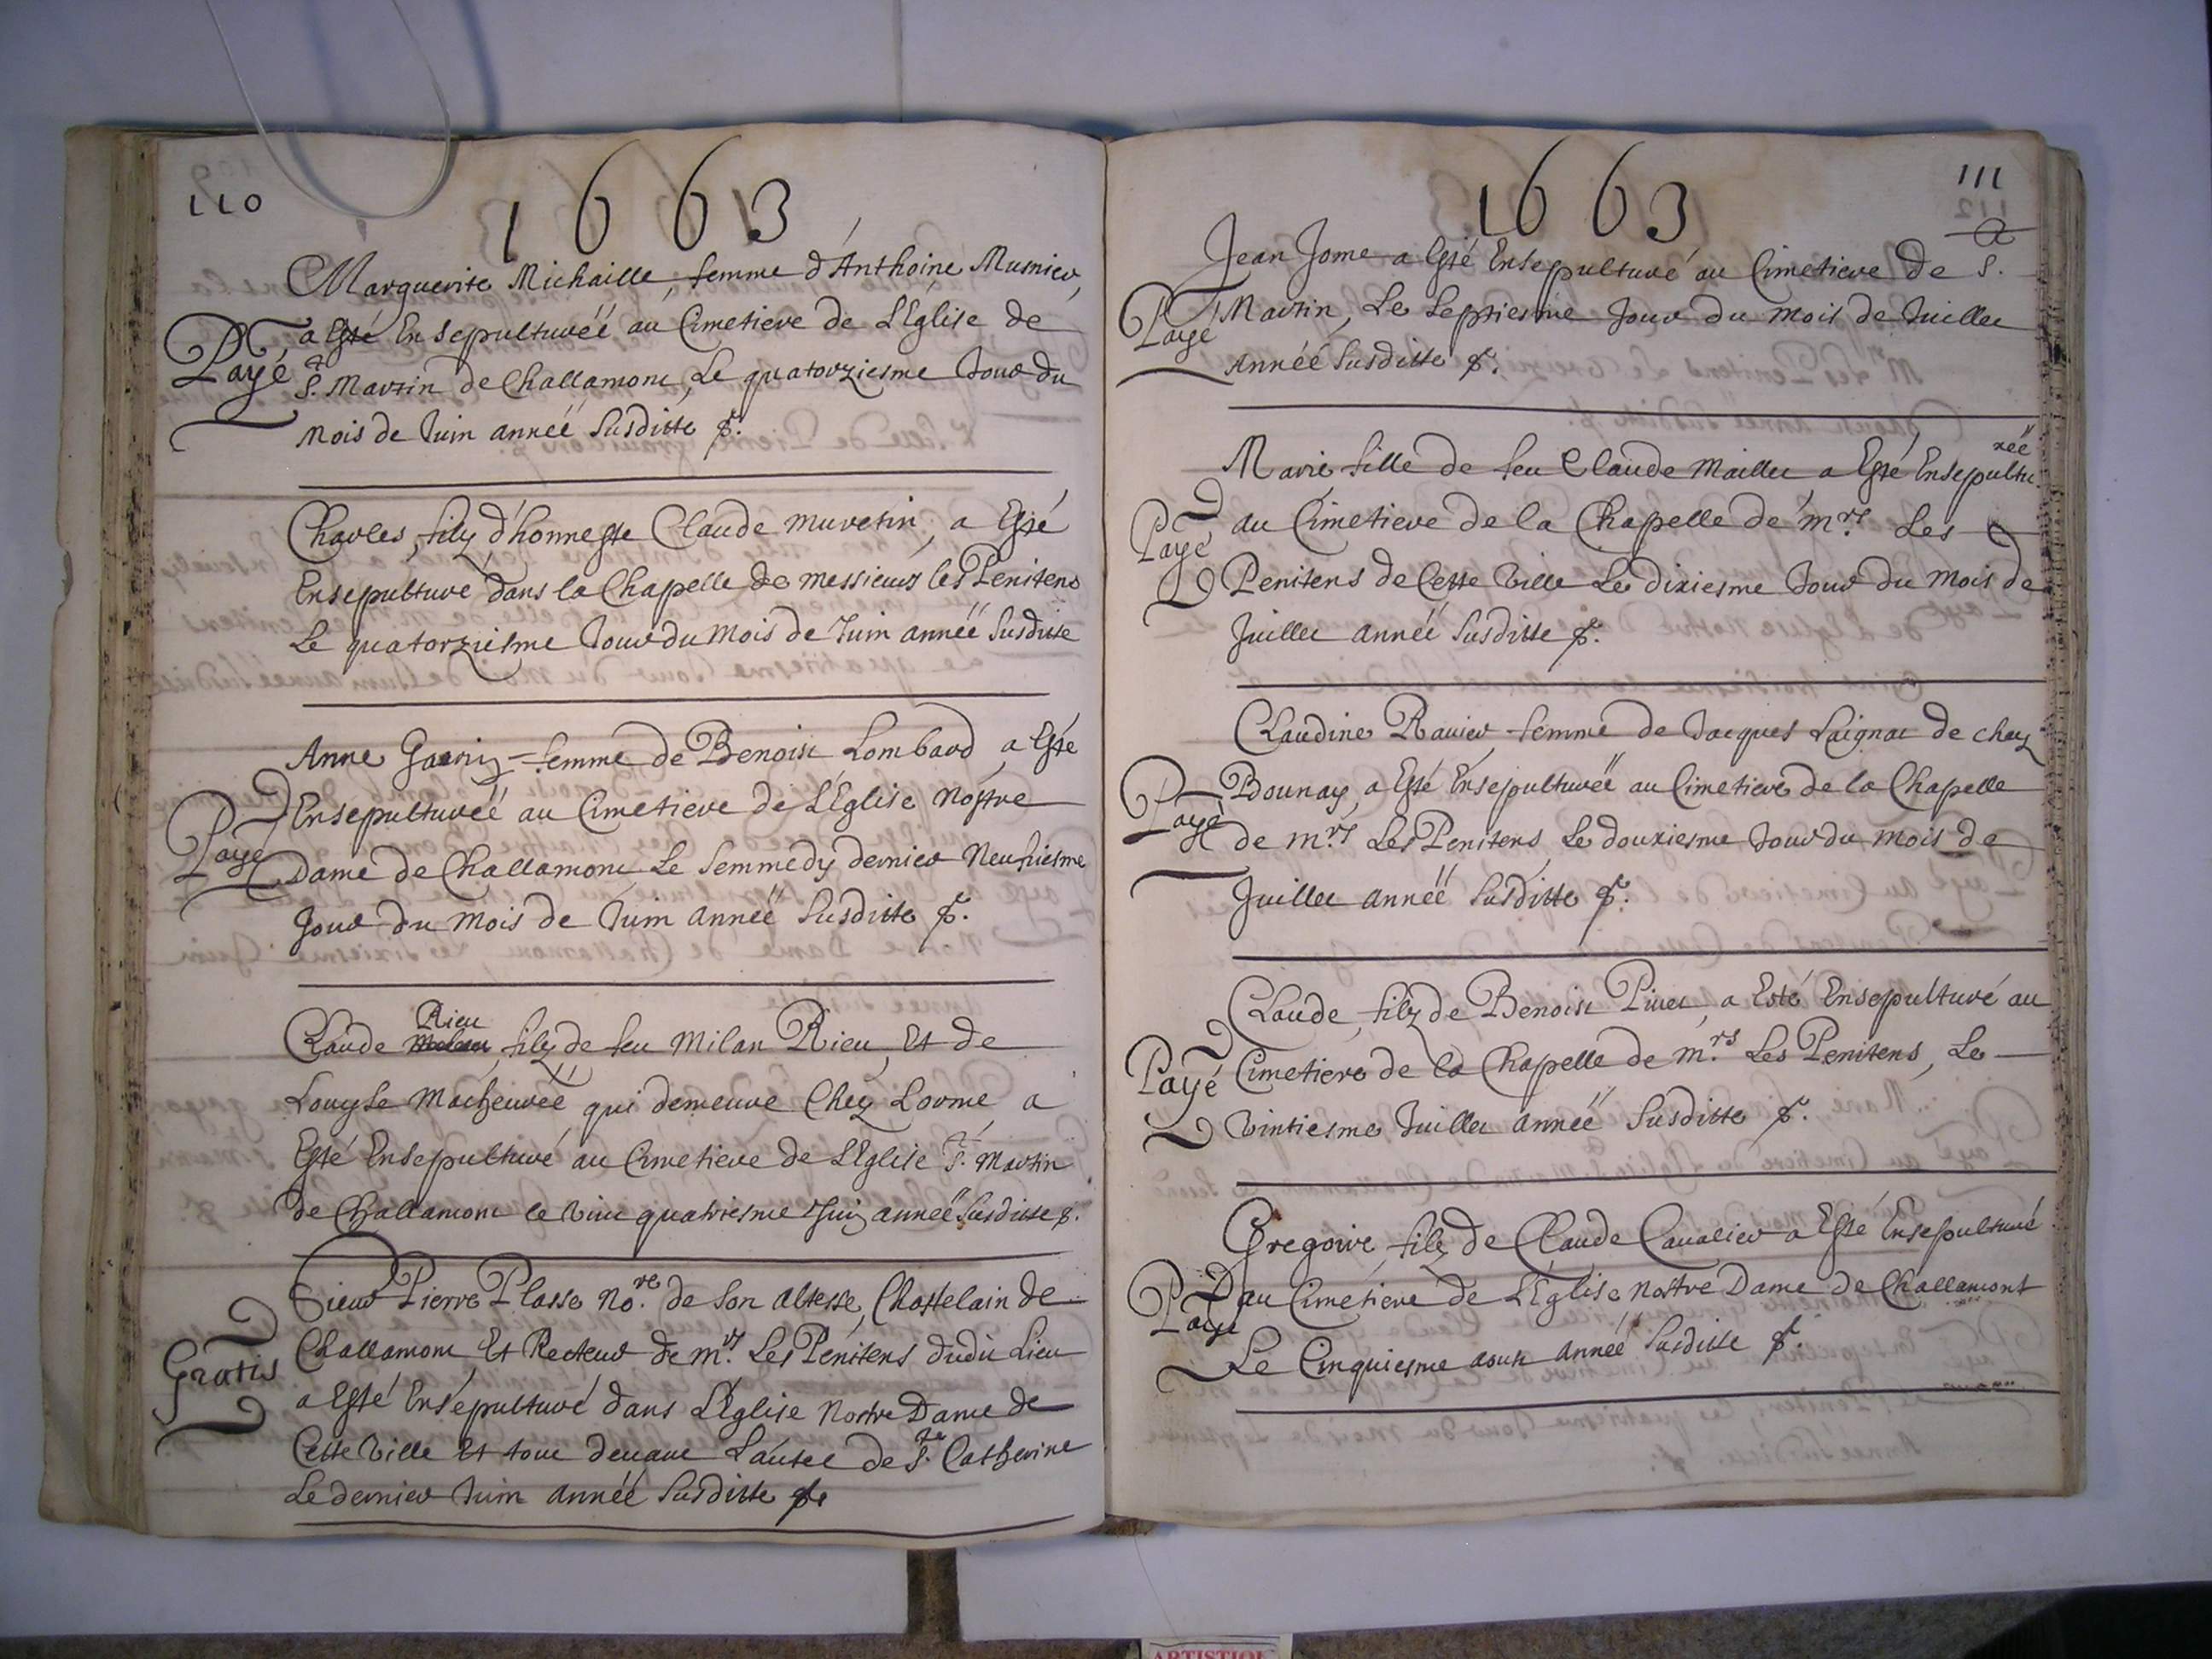 110
1663
Marguerite Michaille, femme d'Anthoine Musnier,
a Esté Ensepulturéé au Cimetiere de L'Eglise de
Payé
St. Martin de Challamont, Le quatorziesme Jour du
mois de Juin annéé Susditte
Charles, filz d'honneste Claude muretin, a Esté
Ensepulturé dans la Chapelle de messieurs les Penitens
Le quatorziesme Jour du mois de Juin annéé Susditte
Anne femme de Benoist Lombard, a Esté
Ensepulturéé au Cimetiere de L'Eglise Nostre
Payé
Dame de Challamont Le Semmedy dernier Neufiesme
Jour du mois de Juin annéé Susditte
Rieu
Claude filz de feu Milan Rieu, Et de
Louyse Macheuréé qui demeure Chez Lorme a
Esté Ensepulturé au Cimetiere de L'Eglise St. Martin
de Challamont le vint quatriesme Juin annéé Susditte
Sieur Pierre Plasse No.re de Son Altesse, Chastelain de
Challamont Et Recteur de m.rs Les Penitens dudit Lieu
Gratis
a Esté Ensepulturé dans L'Eglise Nostre Dame de
Cette Ville Et tout deuant L'autel de Ste. Catherine
Le dernier Juin annéé Susditte
111
112
1663
Jean Jome a Esté Ensepulturé au Cimetiere de S.
Payé
Martin, Le Septiesme Jour du mois de Juillet
Annéé Susditte
réé
Marie fille de feu Claude Maillet a Esté Ensepultu
Payé
au Cimetiere de la Chapelle de m.rs Les
Penitens de Cette Ville Le dixiesme Jour du mois de
Juillet annéé Susditte
Claudine Rauier femme de Jacques Laignat de chez
Payé
Bounay, a Esté Ensepulturéé au Cimetiere de la Chapelle
de m.rs Les Penitens Le douxiesme Jour du mois de
Juillet annéé Susditte
Claude, filz de Benoist Piuet, a Esté Ensepulturé au
Payé
Cimetiere de la Chapelle de m.rs Les Penitens, Le
Vintiesme Juillet annéé Susditte
Gregoire, filz de Claude Caualier a Esté Ensepulturé
Payé
au Cimetiere de L'Eglise Nostre Dame de Challamont
Le Cinquiesme aoust annéé Susditte
ARTISTIQUE